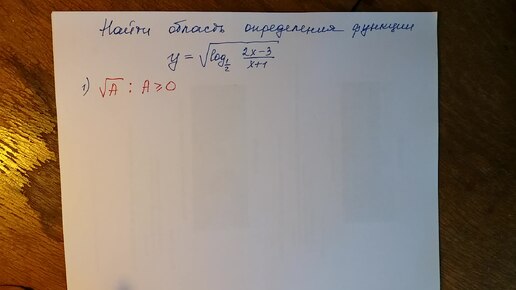 Найти область определения функции
y = √(log_{1/2} (2x-3)/(x+1))
1) √A : A ⩾ 0